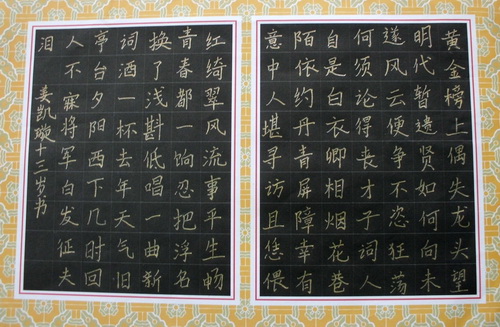 黄金榜上偶失龙头望
明代暂遗贤如何向未
遂风云便争不恣狂荡
何须论得丧才子词人
自是白衣卿相烟花巷
陌依约丹青屏障幸有
意中人堪寻访且恁偎
红绮翠风流事平生畅
青春都一晌忍把浮名
换了浅斟低唱一曲新
词酒一杯去年天气旧
亭台夕阳西下几时回
人不寐将军白发征夫
泪
娄凯璇十二岁书